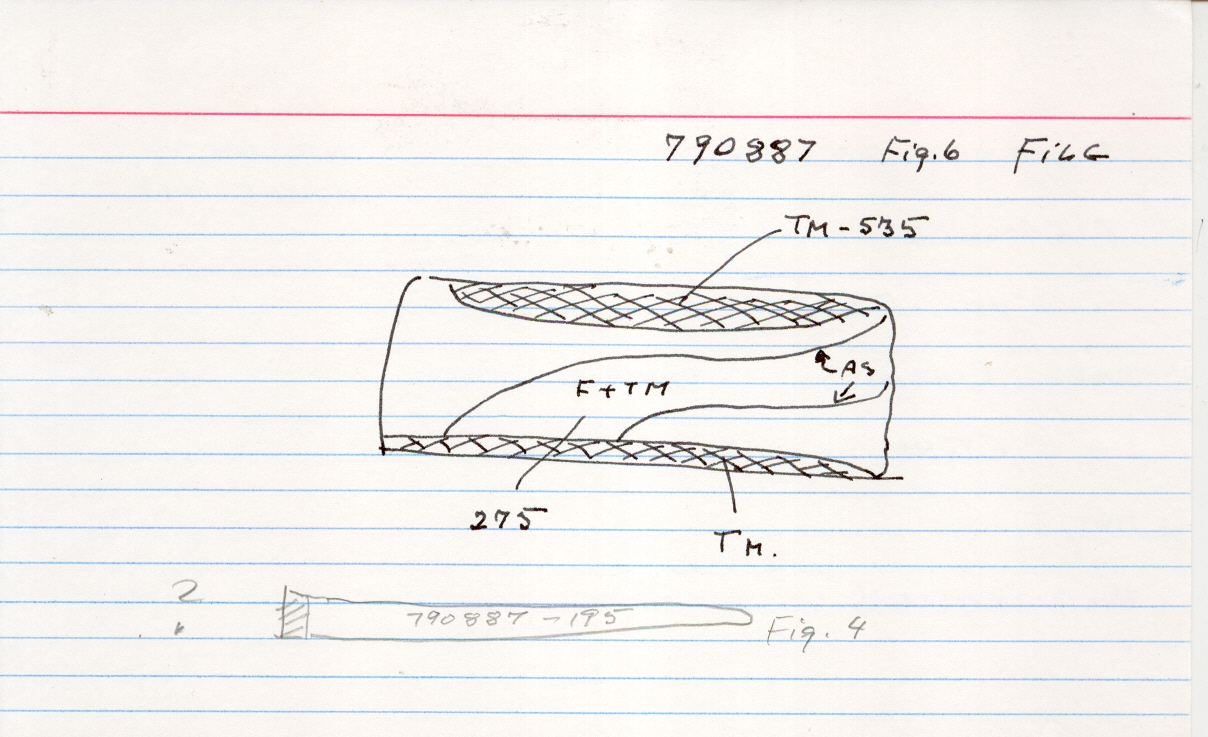 790887 Fig.6 FiLC
TM-535
AS
F+TM
275
TM.
?
790887-195
Fig. 4